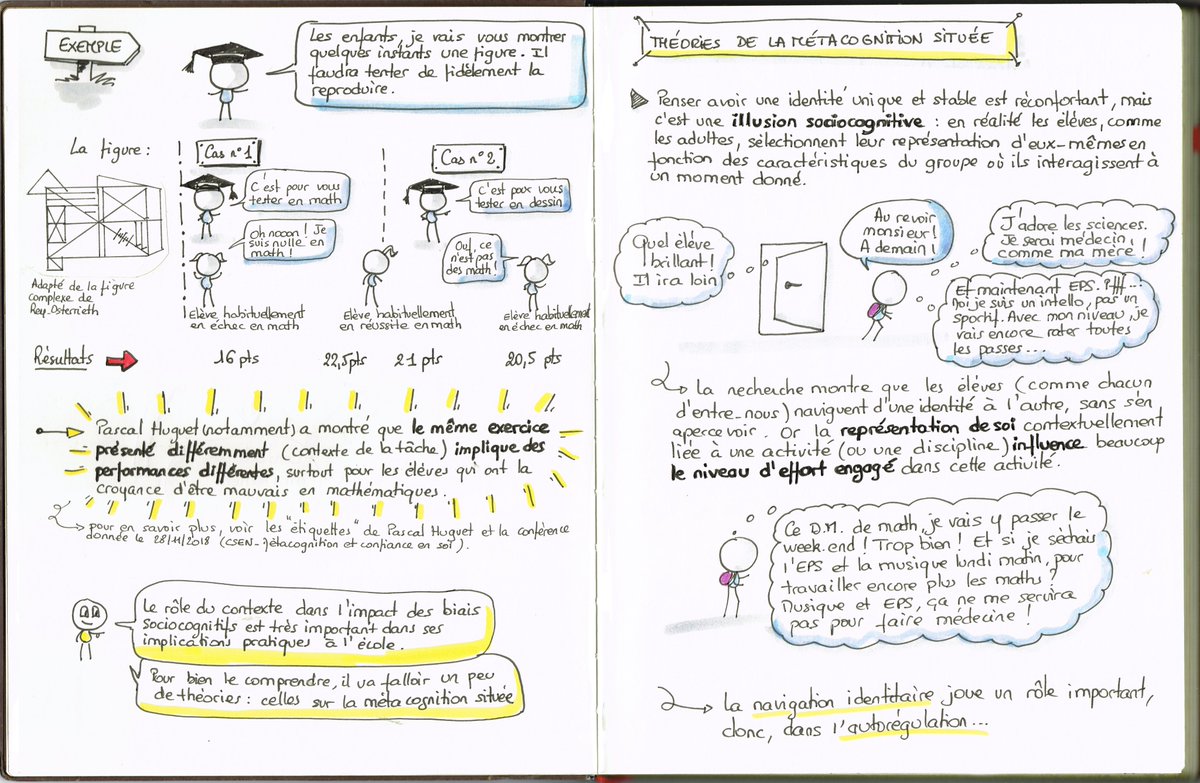 EXEMPLE
Les enfants, je vais vous montrer
quelques instants une figure. Il
faudra tenter de fidèlement la
reproduire.
La figure :
Adapté de la figure
complexe de
Rey-Osterrieth
Cas n°1
C'est pour vous
tester en math
Oh nooon ! Je
suis nulle en
math !
Elève habituellement
en échec en math
Elève habituellement
en réussite en math
Cas n°2
C'est pour vous
tester en dessin
Ouf, ce
n'est pas
des math !
Elève habituellement
en échec en math
Résultats
16 pts
22,5 pts
21 pts
20,5 pts
Pascal Huguet (notamment) a montré que le même exercice
présenté différemment (contexte de la tâche) implique des
performances différentes, surtout pour les élèves qui ont la
croyance d'être mauvais en mathématiques.
pour en savoir plus, voir les "étiquettes" de Pascal Huguet et la conférence
donnée le 28/11/2018 (CSEN - Métacognition et confiance en soi).
Le rôle du contexte dans l'impact des biais
sociocognitifs est très important dans ses
implications pratiques à l'école.
Pour bien le comprendre, il va falloir un peu
de théories : celles sur la métacognition située
THÉORIES DE LA MÉTACOGNITION SITUÉE
Penser avoir une identité unique et stable est réconfortant, mais
c'est une illusion sociocognitive : en réalité les élèves, comme
les adultes, sélectionnent leur représentation d'eux-mêmes en
fonction des caractéristiques du groupe où ils interagissent à
un moment donné.
Quel élève
brillant !
Il ira loin
Au revoir
monsieur !
A demain !
J'adore les sciences.
Je serai médecin
comme ma mère !
Et maintenant EPS. Pfff...
Moi je suis un intello, pas un
sportif. Avec mon niveau, je
vais encore rater toutes
les passes...
La recherche montre que les élèves (comme chacun
d'entre-nous) naviguent d'une identité à l'autre, sans s'en
apercevoir. Or la représentation de soi contextuellement
liée à une activité (ou une discipline) influence beaucoup
le niveau d'effort engagé dans cette activité.
Ce D.M. de math, je vais y passer le
week-end ! Trop bien ! Et si je séchais
l'EPS et la musique lundi matin, pour
travailler encore plus les maths ?
Musique et EPS, ça ne me servira
pas pour faire médecine !
La navigation identitaire joue un rôle important,
donc, dans l'autorégulation...